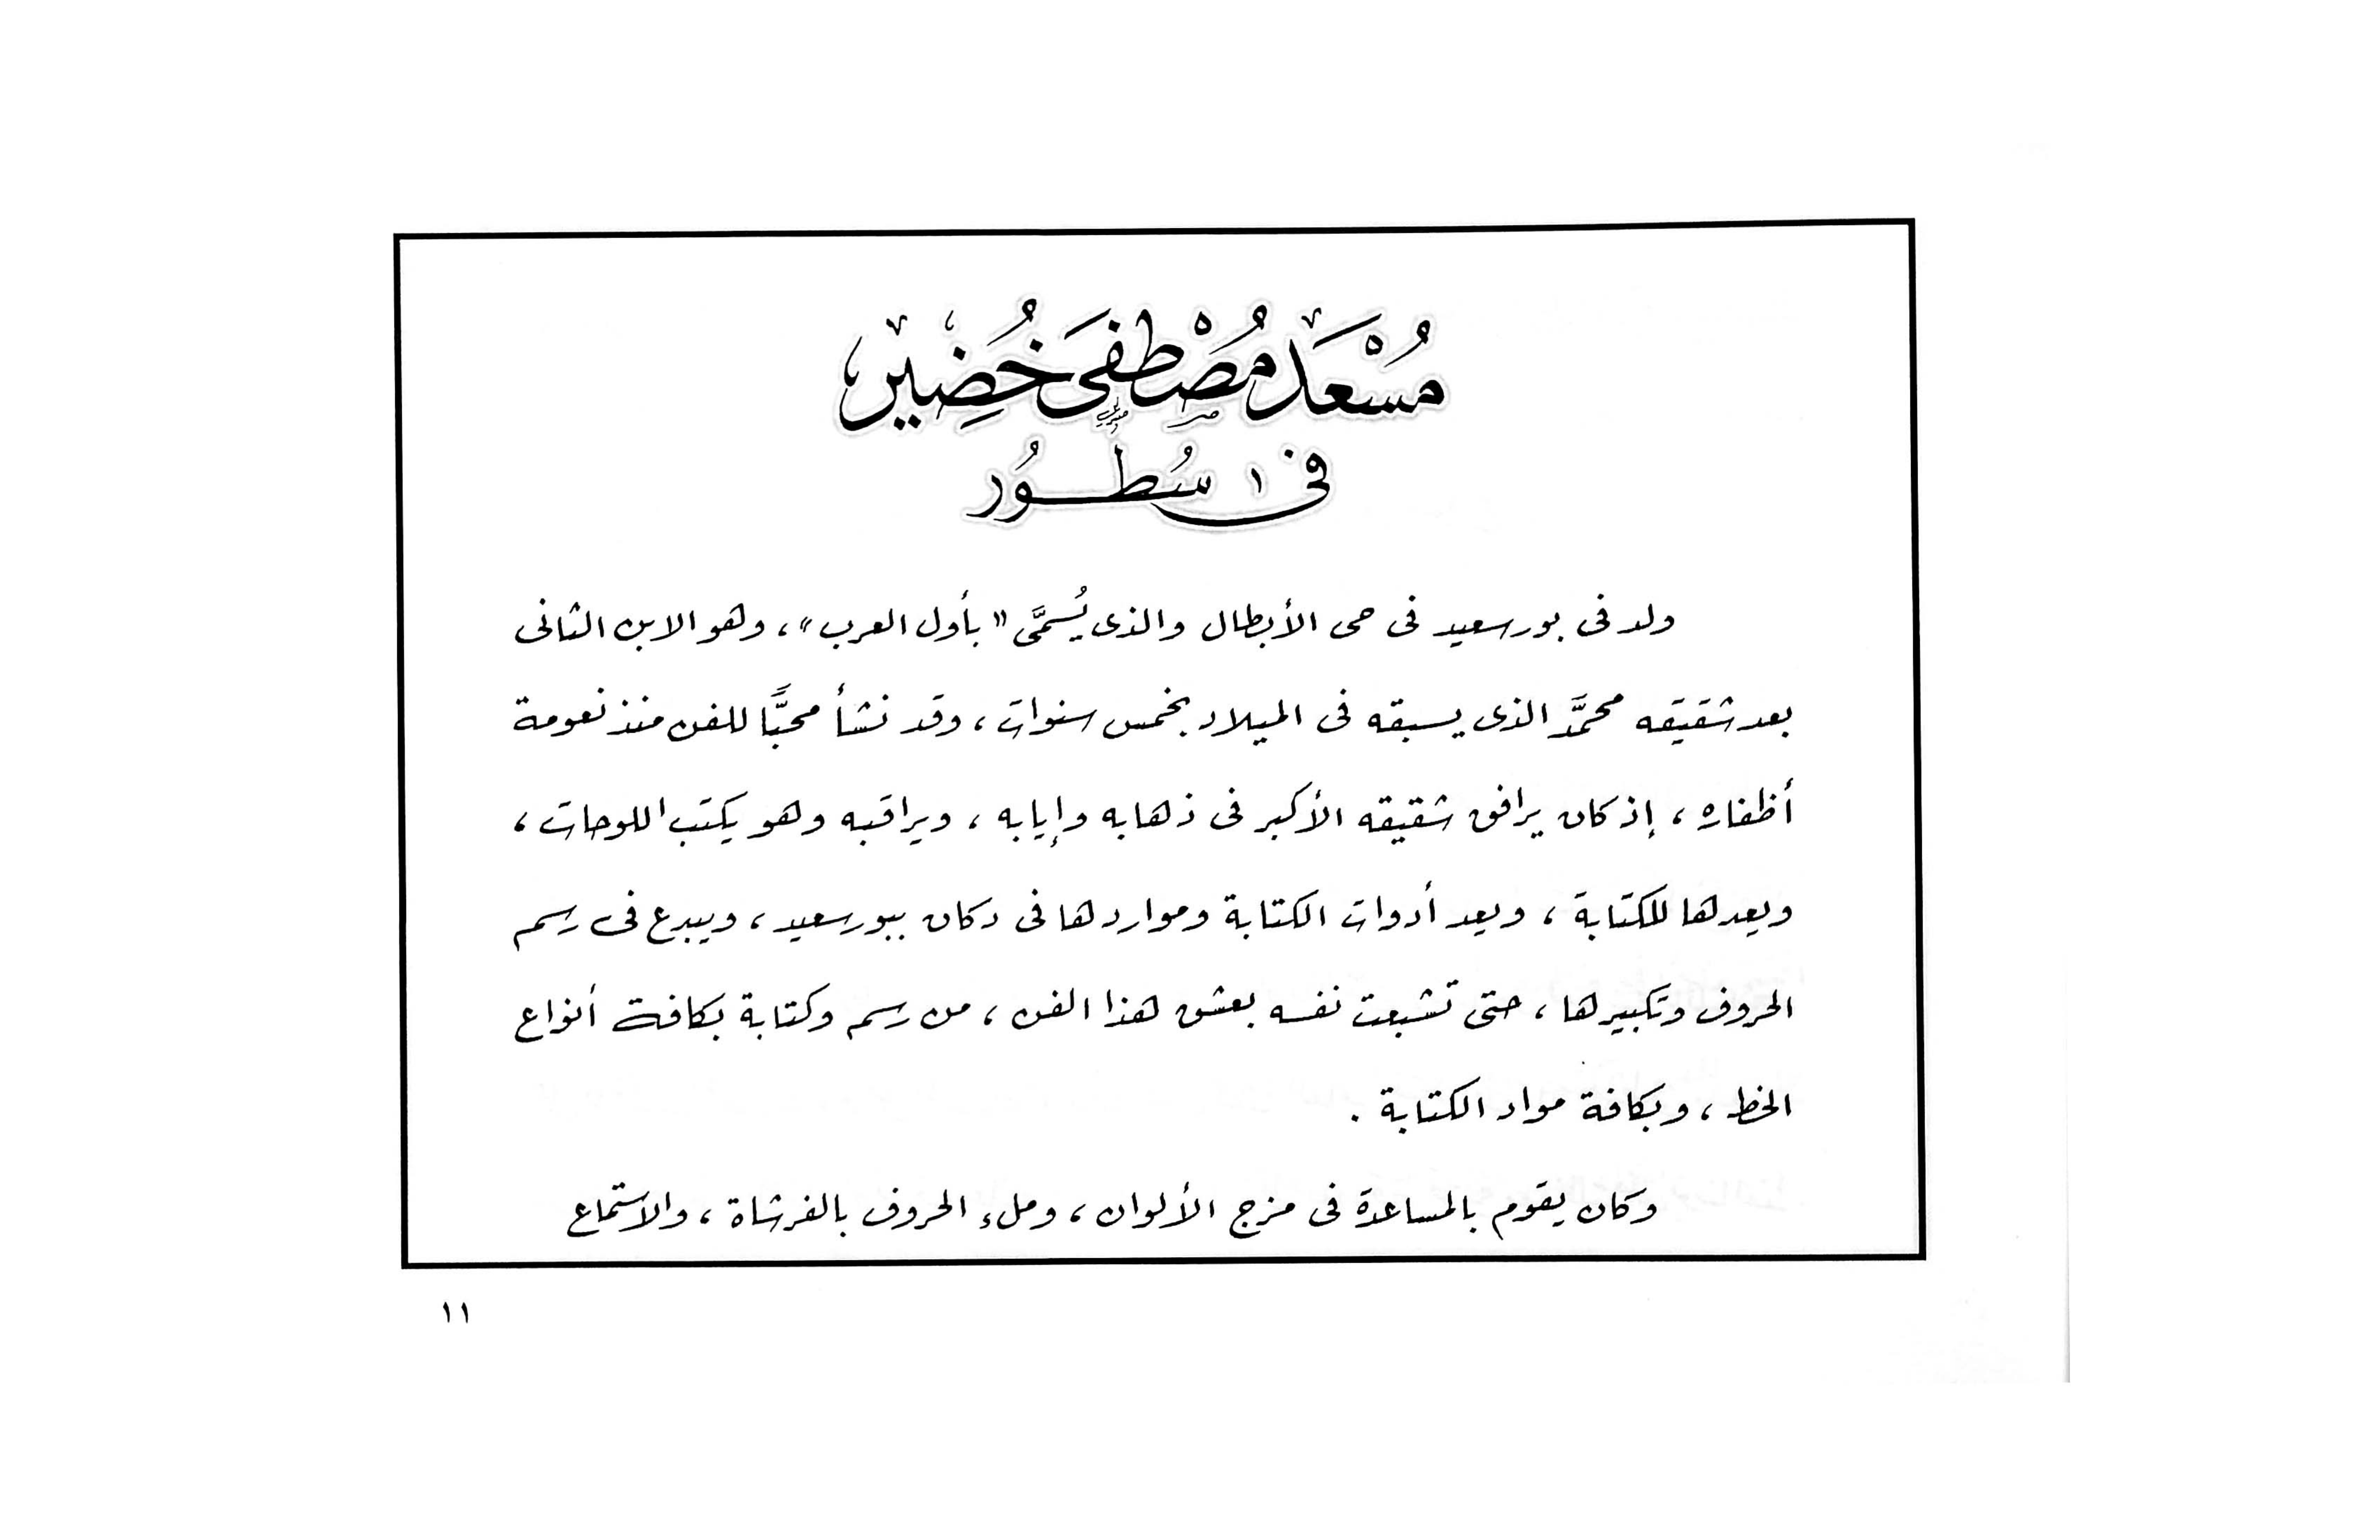 مُسْعَد مُصْطَفَى خُضَيْر
فى سُطُور
ولد فى بورسعيد فى حى الأبطال والذى يُسمَّى "بأول العرب"، وهو الابن الثانى
بعد شقيقه محمَّد الذى يسبقه فى الميلاد بخمس سنوات، وقد نشأ محبًّا للفن منذ نعومة
أظفاره، إذ كان يرافق شقيقه الأكبر فى ذهابه وإيابه، ويراقبه وهو يكتب اللوحات،
ويعدها للكتابة، ويعد أدوات الكتابة ومواردها فى دكان ببورسعيد، ويبدع فى رسم
الحروف وتكبيرها، حتى تشبعت نفسه بعشق هذا الفن، من رسم وكتابة بكافة أنواع
الخط، وبكافة مواد الكتابة.
وكان يقوم بالمساعدة فى مزج الألوان، وملء الحروف بالفرشاة، والاستماع
١١